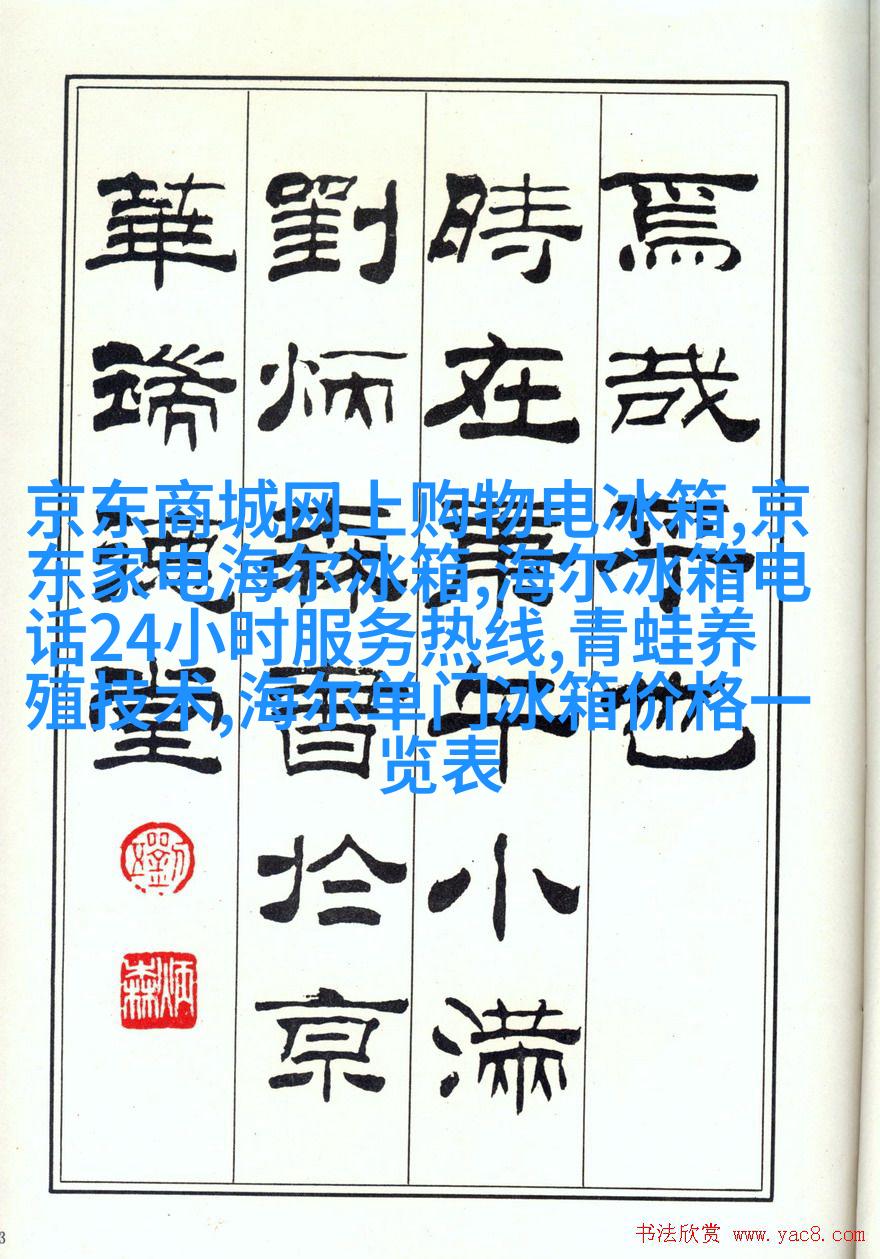 焉哉乎也
時在庚午小滿
劉炳森書於京
華堂
炳森
京东商城网上购物电冰箱,京
东家电海尔冰箱,海尔冰箱电
话24小时服务热线,青蛙养
殖技术,海尔单门冰箱价格一
览表
书法欣赏 www.yac8.com
3